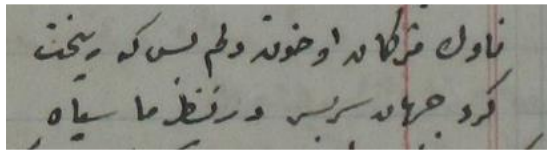 ناوك مژگان او خون دلم بس که ریخت
کرد جهان سربسر در نظر ما سیاه